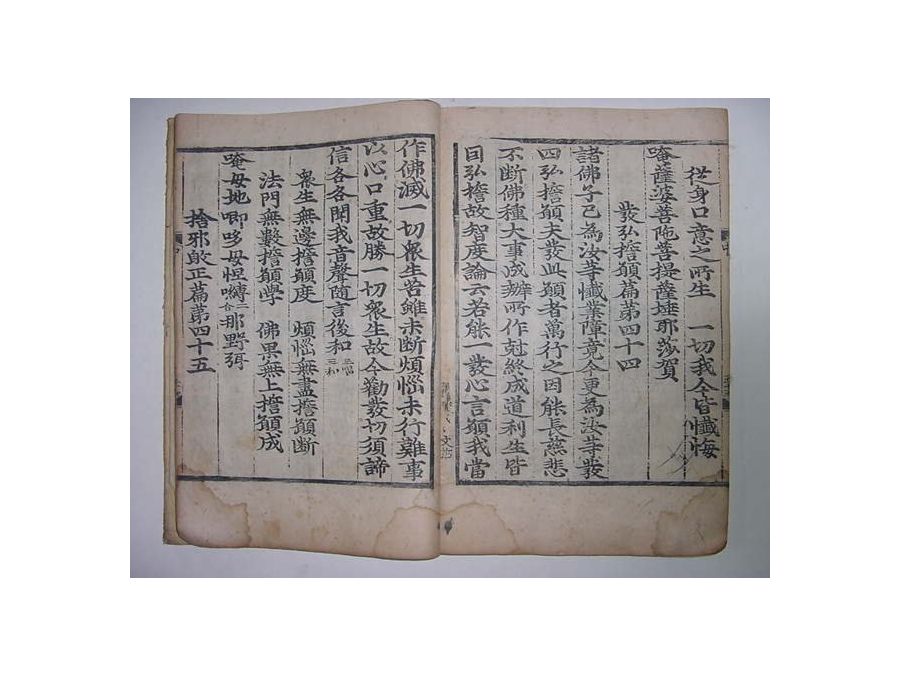 從身口意之所生 一切我今皆懺悔
唵薩婆菩陁菩提薩埵耶莎賀
發弘誓願篇第四十四
諸佛子已為汝等懺業障竟今更為汝等發
四弘誓願夫發此願者萬行之因能長慈悲
不斷佛種大事成辦所作尅終成道利生皆
因弘誓故智度論云若能一發心言願我當
作佛滅一切衆生苦雖未斷煩惱未行難事
以心口重故勝一切衆生故今勸發切須諦
信各各聞我音聲隨言後和
衆生無邊誓願度 煩惱無盡誓願斷
法門無數誓願學 佛果無上誓願成
唵毋地唧哆毋怛縛 那野弭
捨邪歸正篇第四十五